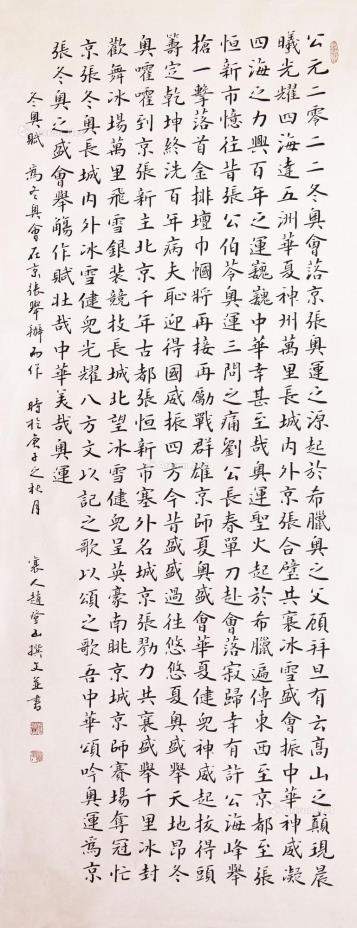 公元二零二二冬奧會落京張奧運之源起於希臘奧之父顧拜旦有云高山之巔現晨
曦光耀四海達五洲華夏神州萬里長城內外京張合璧共襄冰雪盛會振中華神威凝
四海之力興百年之運巍巍中華幸甚至哉奧運聖火起於希臘遍傳東西至京都至張
恒新市憶往昔張公伯苓奧運三問之痛劉公長春單刀赴會落寂歸幸有許公海峰舉
槍一擊落首金排壇巾幗將再接再勵戰群雄京師夏奧盛會華夏健兒神威起拔得頭
籌定乾坤終洗百年病夫恥迎得國威振四方今昔盛盛過往悠悠夏奧盛舉天地昂冬
奧嚯嚯到京張新主北京千年古都張恒新市塞外名城京張勠力共襄盛舉千里冰封
歡舞冰場萬里飛雪銀裝競技長城北望冰雪健兒呈英豪南眺京城京師賽場奪冠忙
京張冬奧長城內外冰雪健兒光耀八方文以記之歌以頌之歌吾中華頌吟奧運為京
張冬奧之盛會舉觴作賦壯哉中華美哉奧運
冬奧賦 為冬奧會在京張舉辦而作 時於庚子之秋月 襄人趙堂山撰文並書